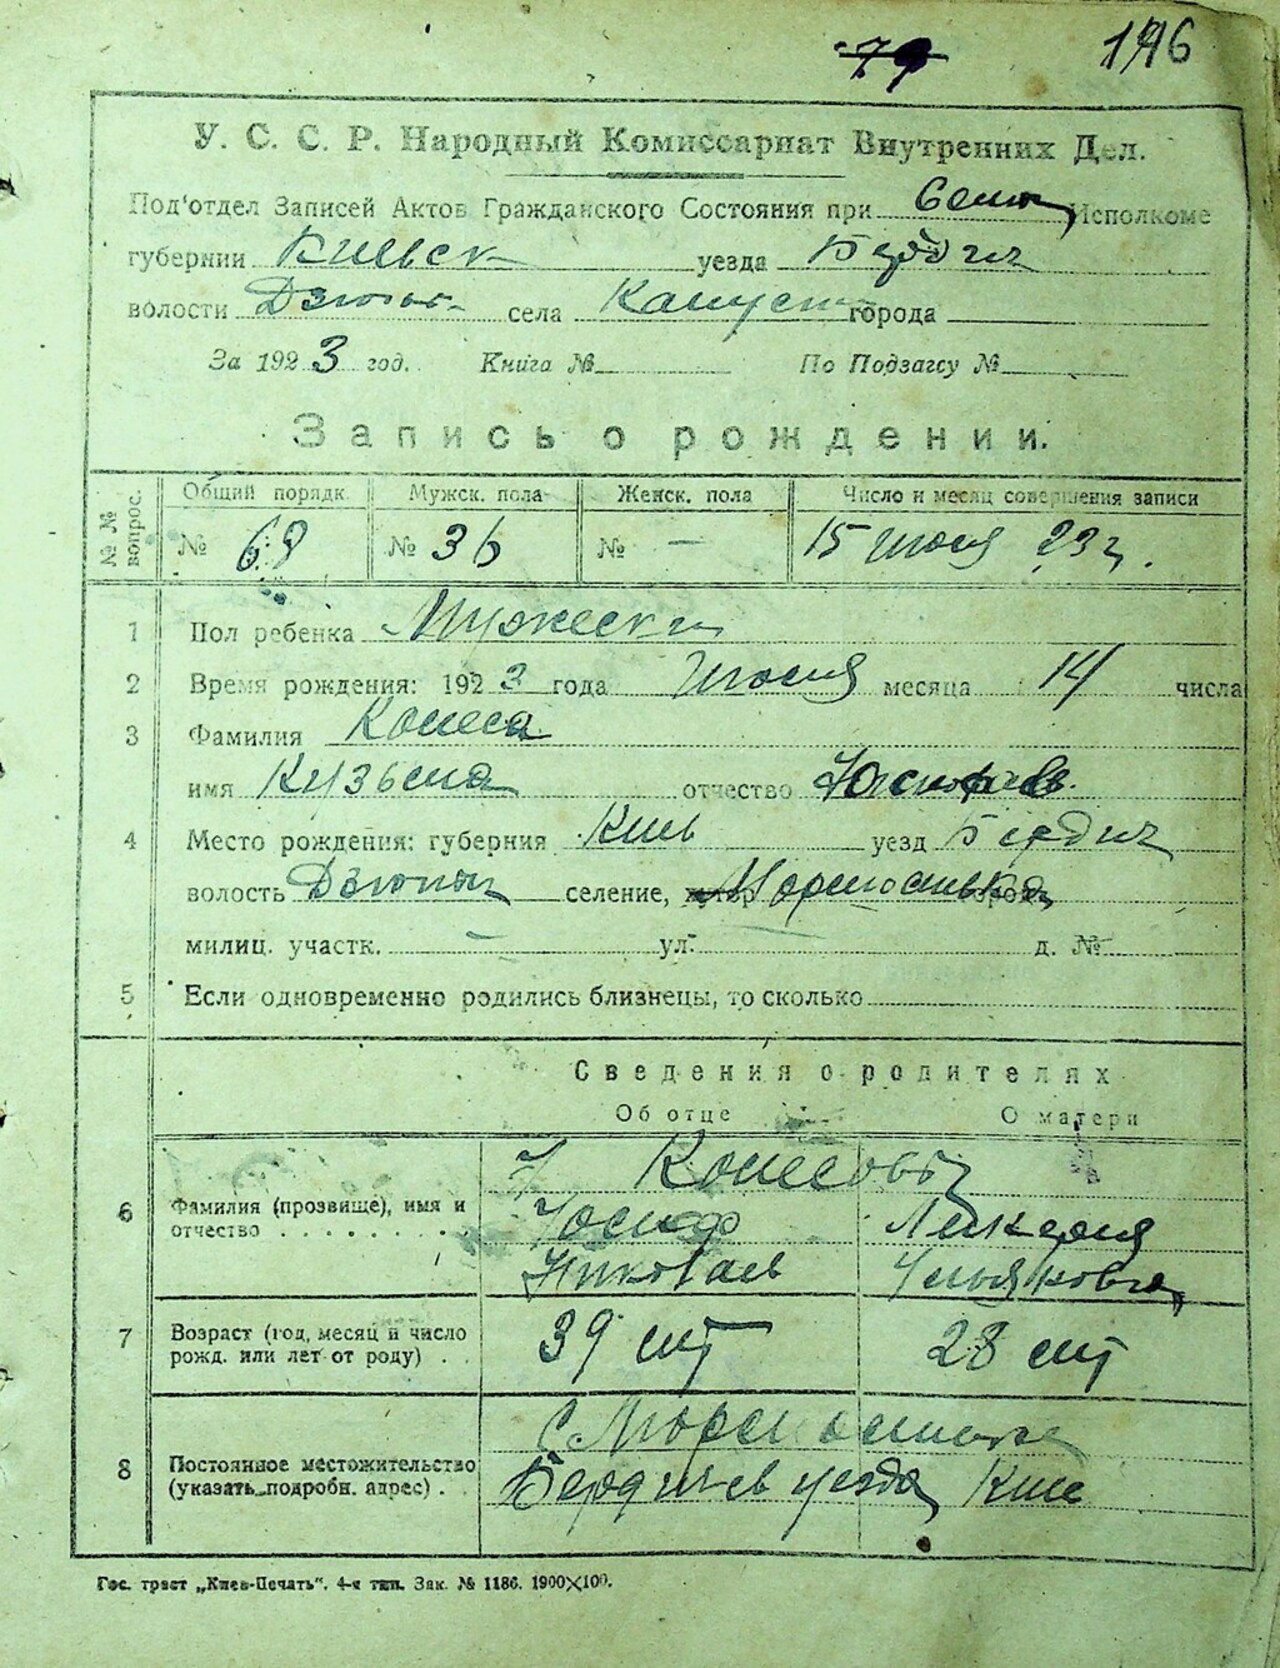 79 146
У. С. С. Р. Народный Комиссариат Внутренних Дел.
Под'отдел Записей Актов Гражданского Состояния при Исполкоме
губернии Киевск уезда Бердич
волости Дзюньк села Капуст города
За 1923 год. Книга № По Подзагсу №
Запись о рождении.
№№ вопрос. Общий порядк. Мужск. пола Женск. пола Число и месяц совершения записи
№ 68 № 36 № — 15 июля 23 г.
1 Пол ребенка Мужеск
2 Время рождения: 1923 года Июля месяца 14 числа
3 Фамилия
имя Кузьма отчество
4 Место рождения: губерния Киев уезд Бердич
волость Дзюньк селение, хутор город
милиц. участк. — ул. д. №
5 Если одновременно родились близнецы, то сколько
Сведения о родителях
Об отце О матери
6 Фамилия (прозвище), имя и
отчество . . . . . . . . .
Иосиф Ликерия
Николаев
7 Возраст (год, месяц и число
рожд. или лет от роду) . .
39 лет 28 лет
8 Постоянное местожительство
(указать подробн. адрес) .
С.
Бердичев уезда Киев
Гос. трест „Киев-Печать". 4-я тип. Зак. № 1186. 1900×100.